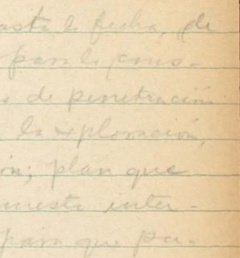 hasta la fecha, de
para la cons-
de penetración
la exploración,
ón; plan que
uesta inter-
para que pu-